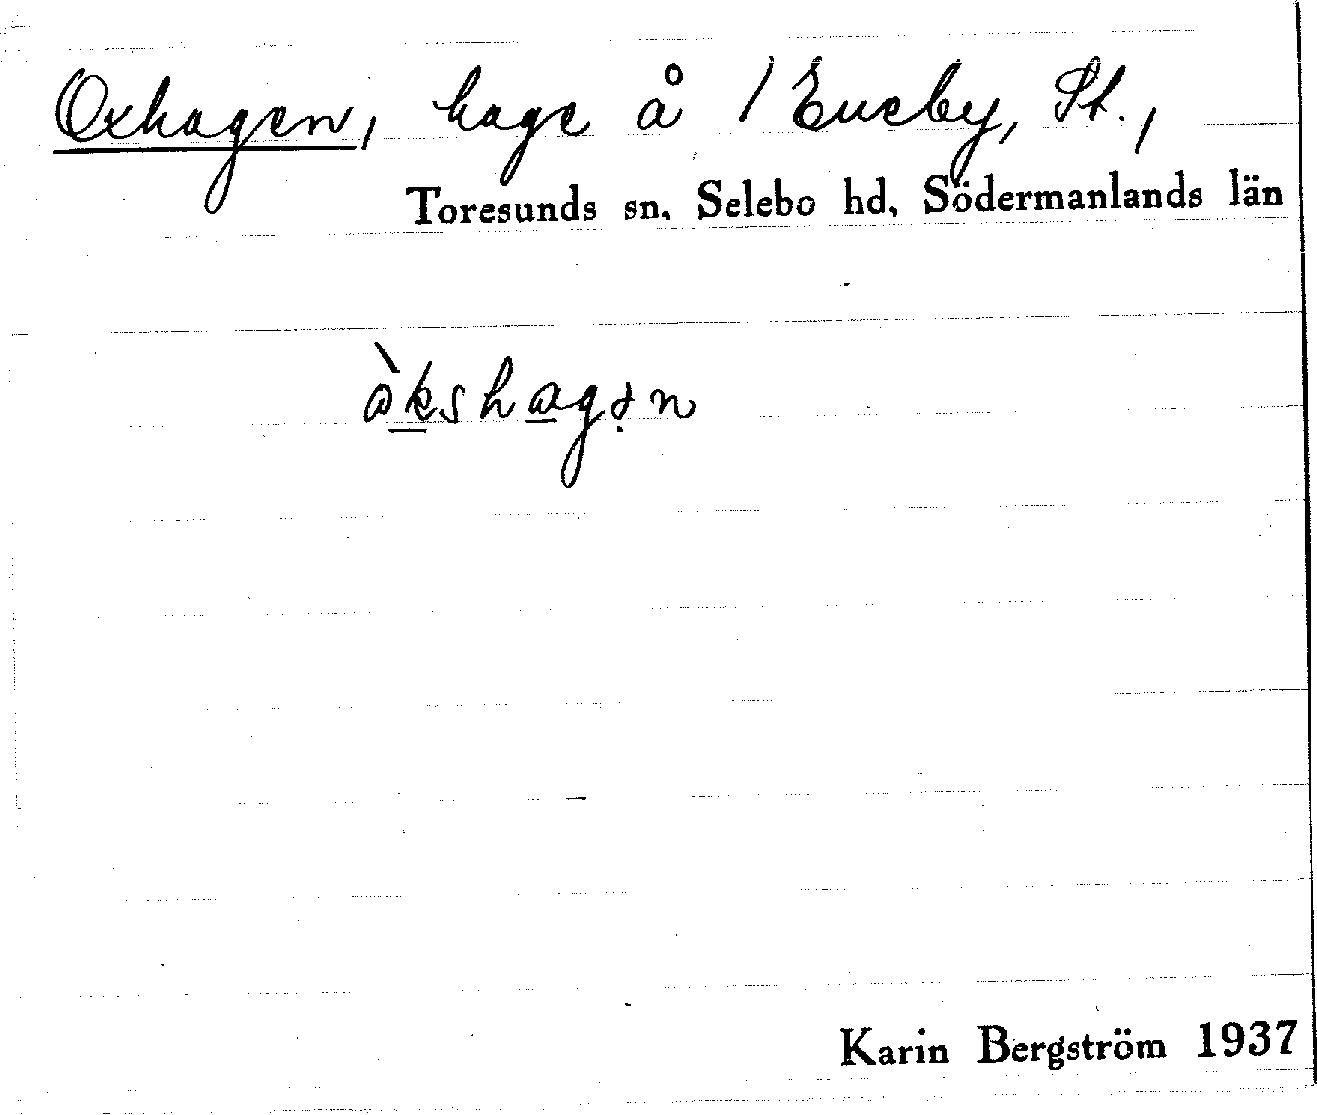 Oxhagen, hage å 1 Eneby, St.,
Toresunds sn. Selebo hd, Södermanlands län
òkshagən
Karin Bergström 1937